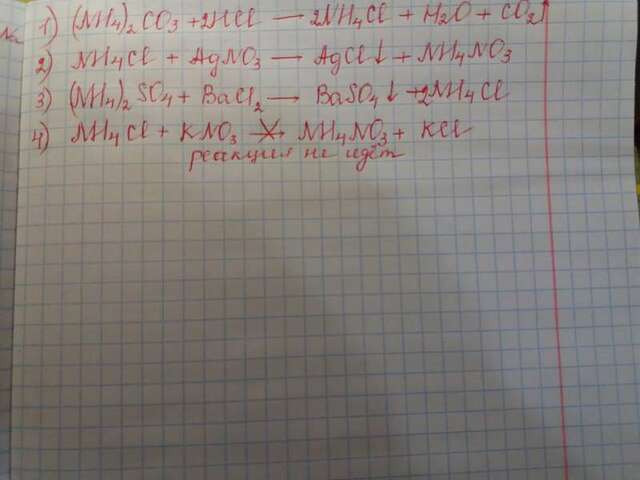 1) (NH4)2CO3 + 2HCl → 2NH4Cl + H2O + CO2↑
2) NH4Cl + AgNO3 → AgCl↓ + NH4NO3
3) (NH4)2SO4 + BaCl2 → BaSO4↓ + 2NH4Cl
4) NH4Cl + KNO3 ↛ NH4NO3 + KCl
реакция не идёт